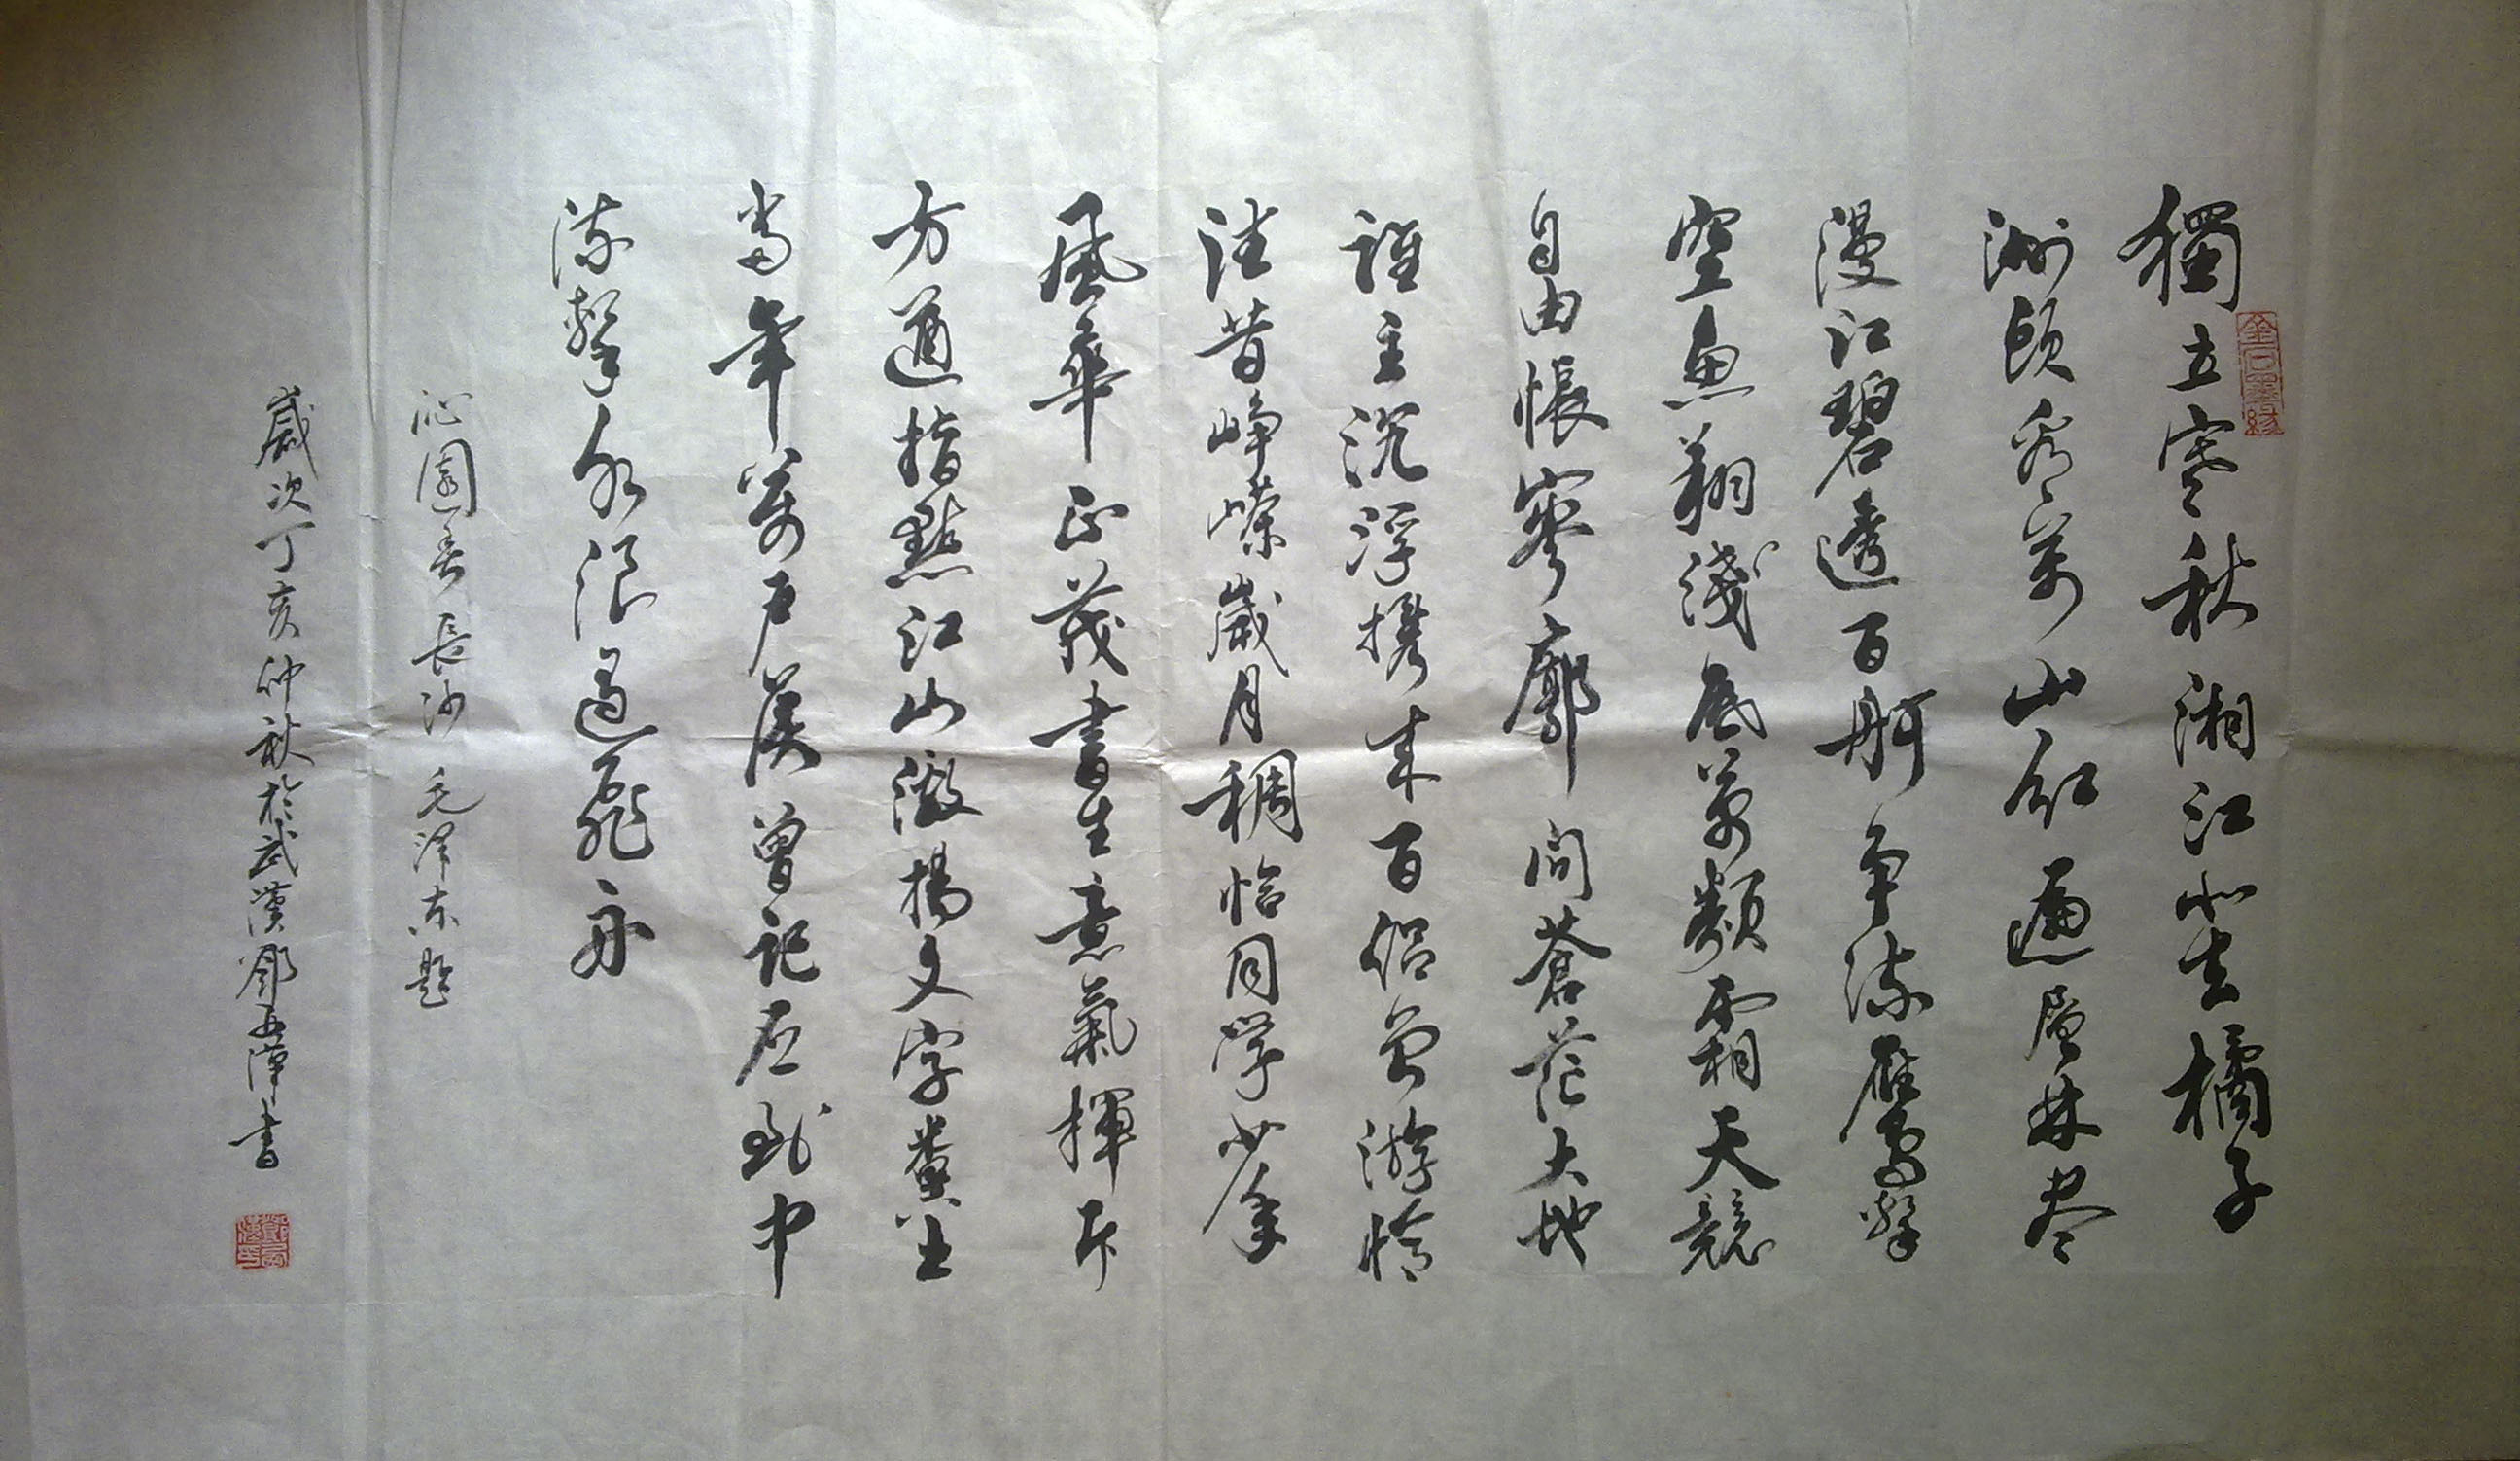 獨立寒秋湘江北去橘子
洲頭看萬山紅遍層林盡
漫江碧透百舸争流鷹擊
空魚翔淺底萬類霜天競
自由悵寥廓問蒼茫大地
誰主沉浮携来百侣曾游憶
往昔崢嶸歲月稠恰同學少年
風華正茂書生意氣揮斥
方遒指點江山激揚文字糞土
當年萬户侯曾記否到中
流擊水浪遏飛舟
沁園春長沙 毛澤東題
歲次丁亥仲秋於武漢鄧漢書
金石墨緣